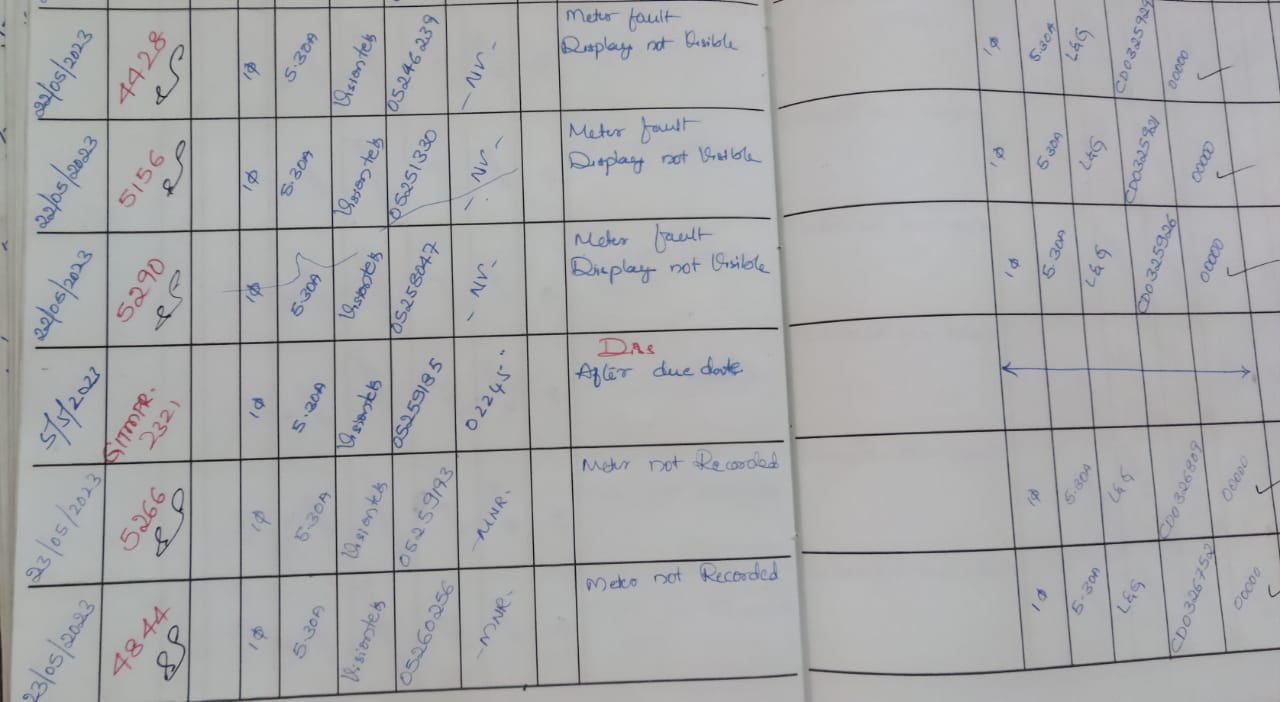 22/05/2023 4428 1φ 5.30A Visiontek 05246239 -NV- Meter fault 1φ 5.30A L&G CD0325929 00000 ✓
Display not Visible
22/05/2023 5156 1φ 5.30A Visiontek 05251330 -NV- Meter fault 1φ 5.30A L&G CD0325921 00000 ✓
Display not Visible
22/05/2023 5290 1φ 5.30A Visiontek 05258047 -NV- Meter fault 1φ 5.30A L&G CD0325926 00000 ✓
Display not Visible
5/5/2023 2321 1φ 5.30A Visiontek 05259185 02245 Dis
After due date
23/05/2023 5266 1φ 5.30A Visiontek 05259193 -MNR- Meter not Recorded 1φ 5.30A L&G CD0326809 00000 ✓
23/05/2023 4844 1φ 5.30A Visiontek 05260256 -MNR- Meter not Recorded 1φ 5.30A L&G CD0326752 00000 ✓